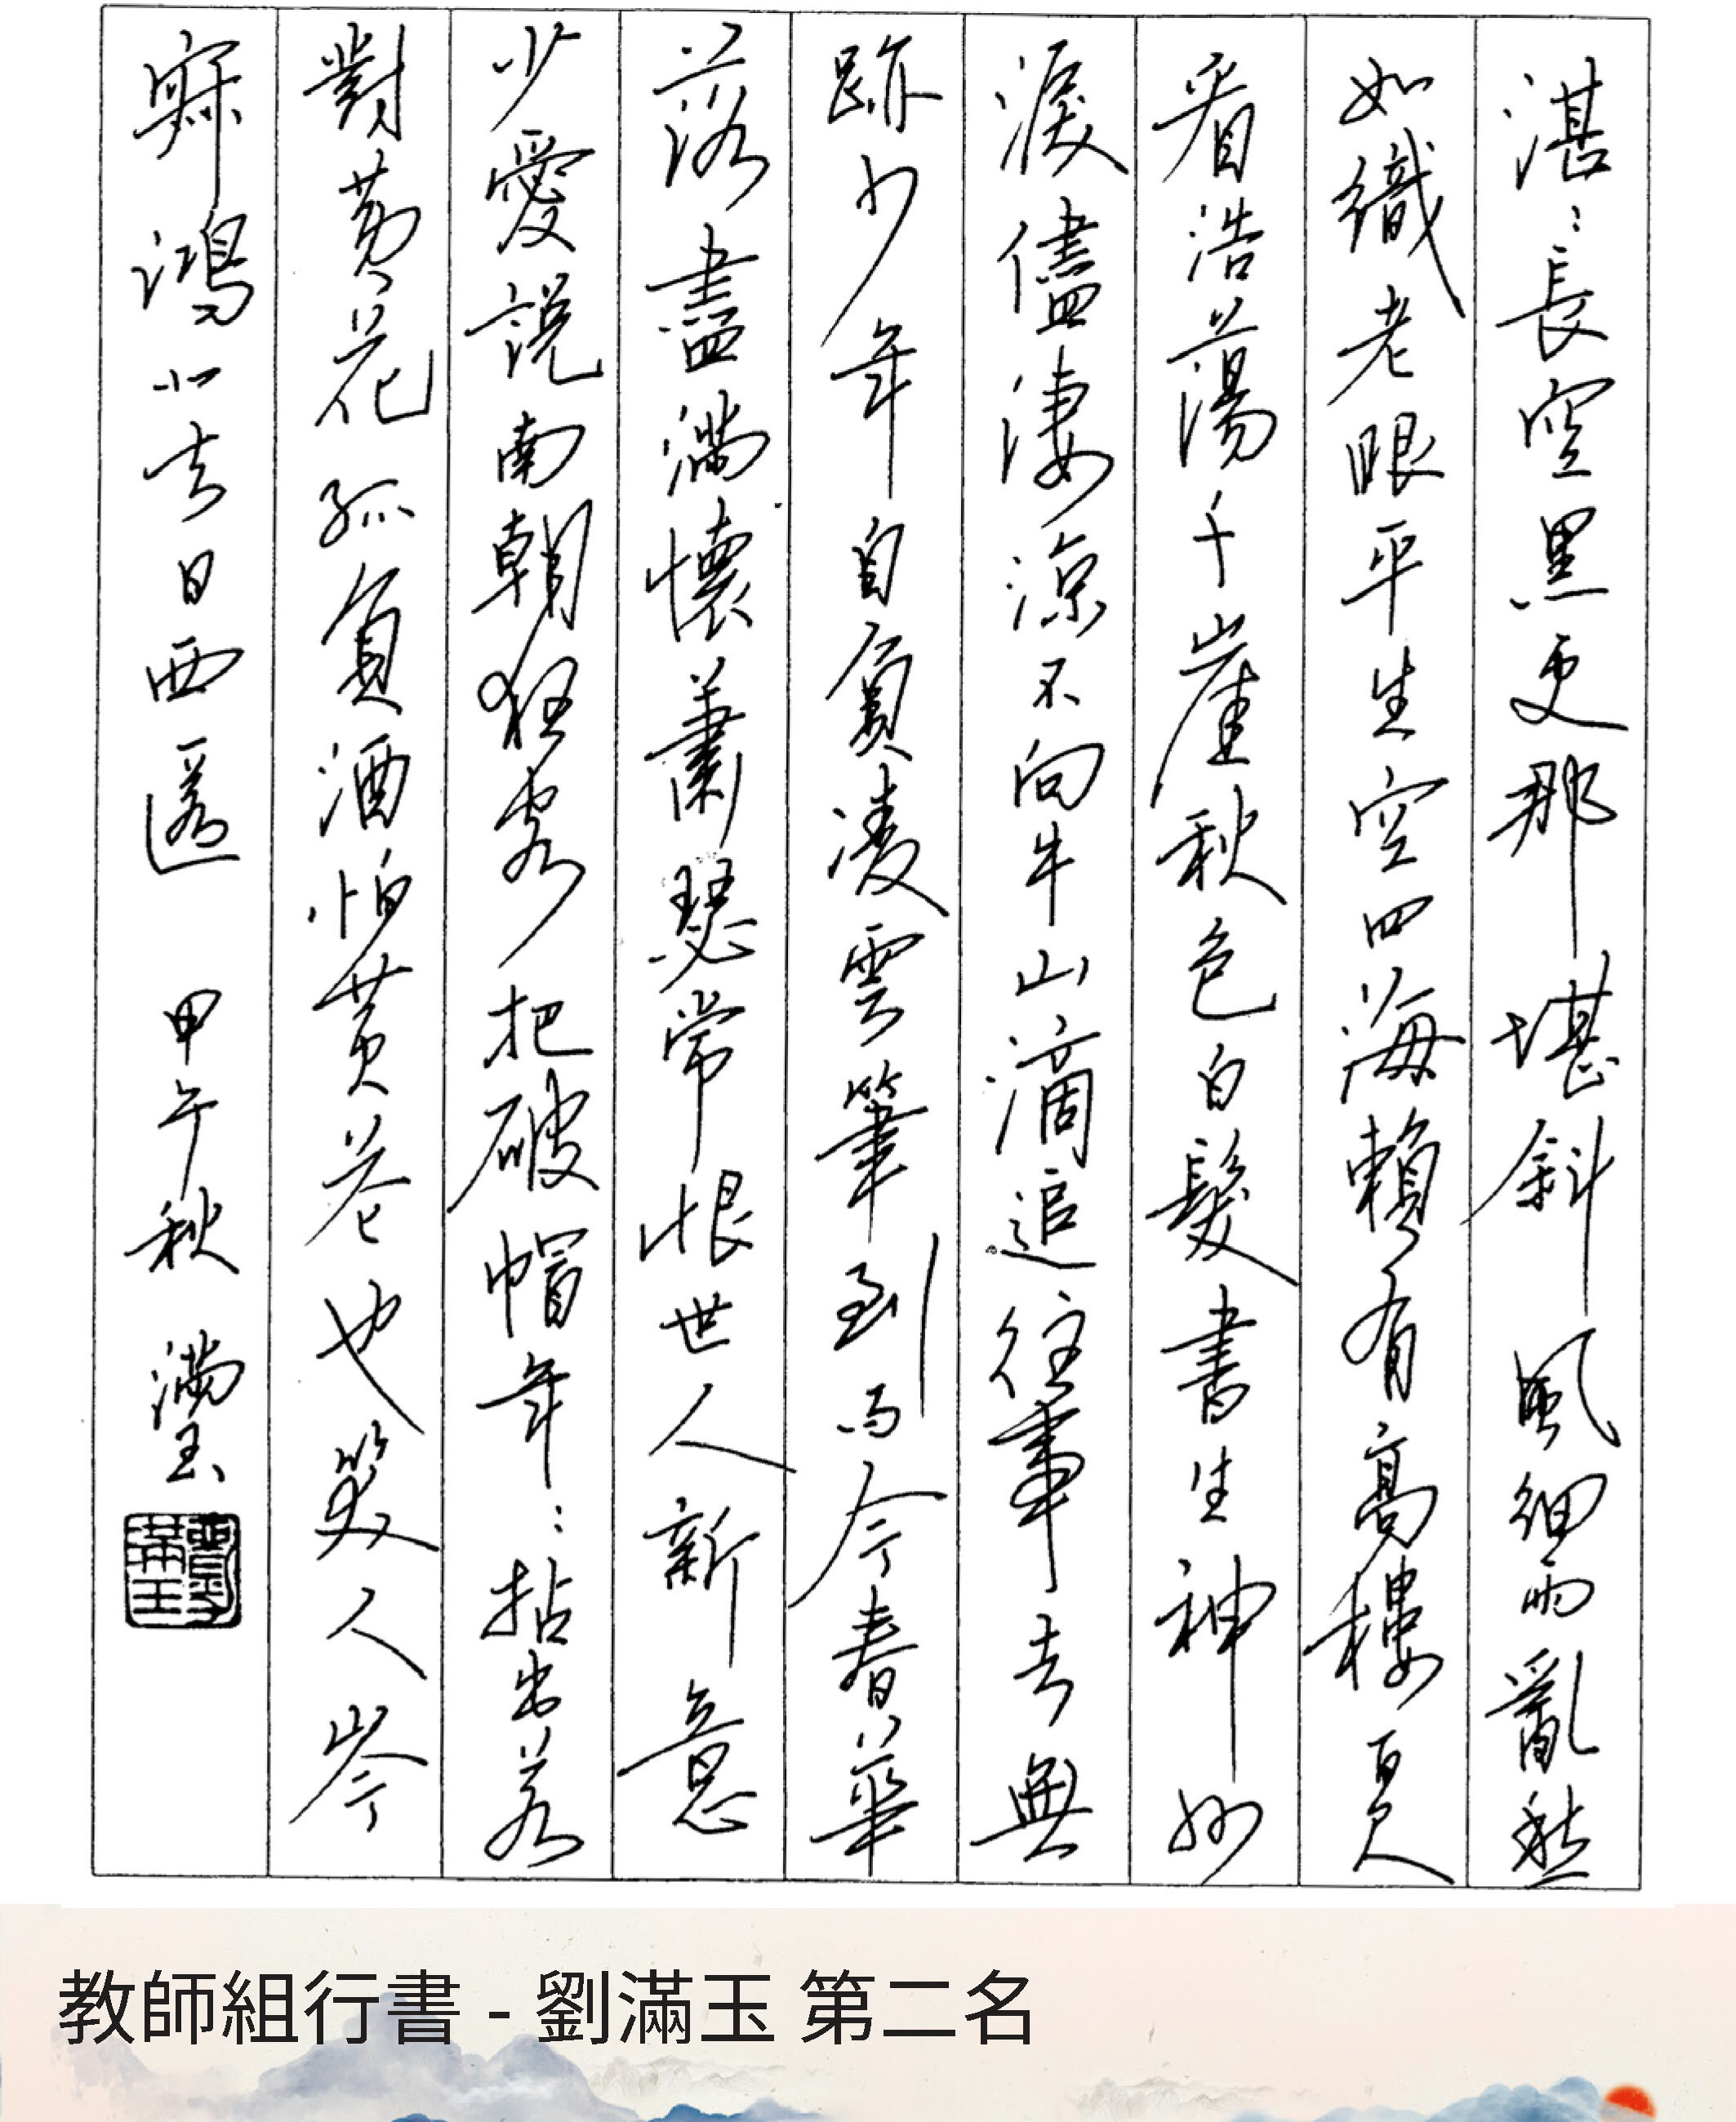 湛：長空黑更那堪斜風細雨亂愁
如織老眼平生空四海賴有高樓百尺
看浩蕩千崖秋色白髮書生神州
淚儘淒涼不向牛山滴追往事去無
跡少年自負凌雲筆到而今春華
落盡滿懷蕭瑟常恨世人新意
少愛說南朝狂客把破帽年：拈出若
對黃花孤負酒怕黃花也笑人岑
寂鴻北去日西匿 甲午秋 滿玉
教師組行書 - 劉滿玉 第二名